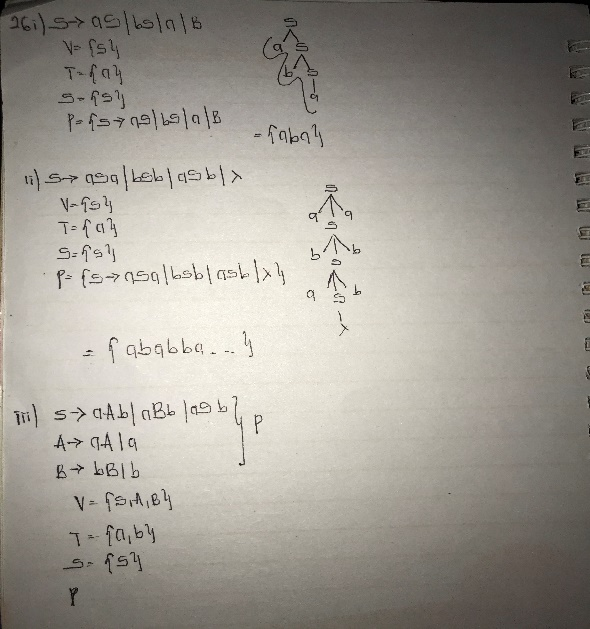 26i) S → aS | bS | a | B
V = {S}
T = {a}
S = {S}
P = {S → aS | bS | a | B
S
a S
b S
a
= {aba}
ii) S → aSa | bSb | aSb | λ
V = {S}
T = {a}
S = {S}
P = {S → aSa | bSb | aSb | λ}
S
a a
S
b b
S
a S b
λ
= { ababba ... }
iii) S → aAb | aBb | aSb } P
A → aA | a
B → bB | b
V = {S, A, B}
T = {a, b}
S = {S}
P